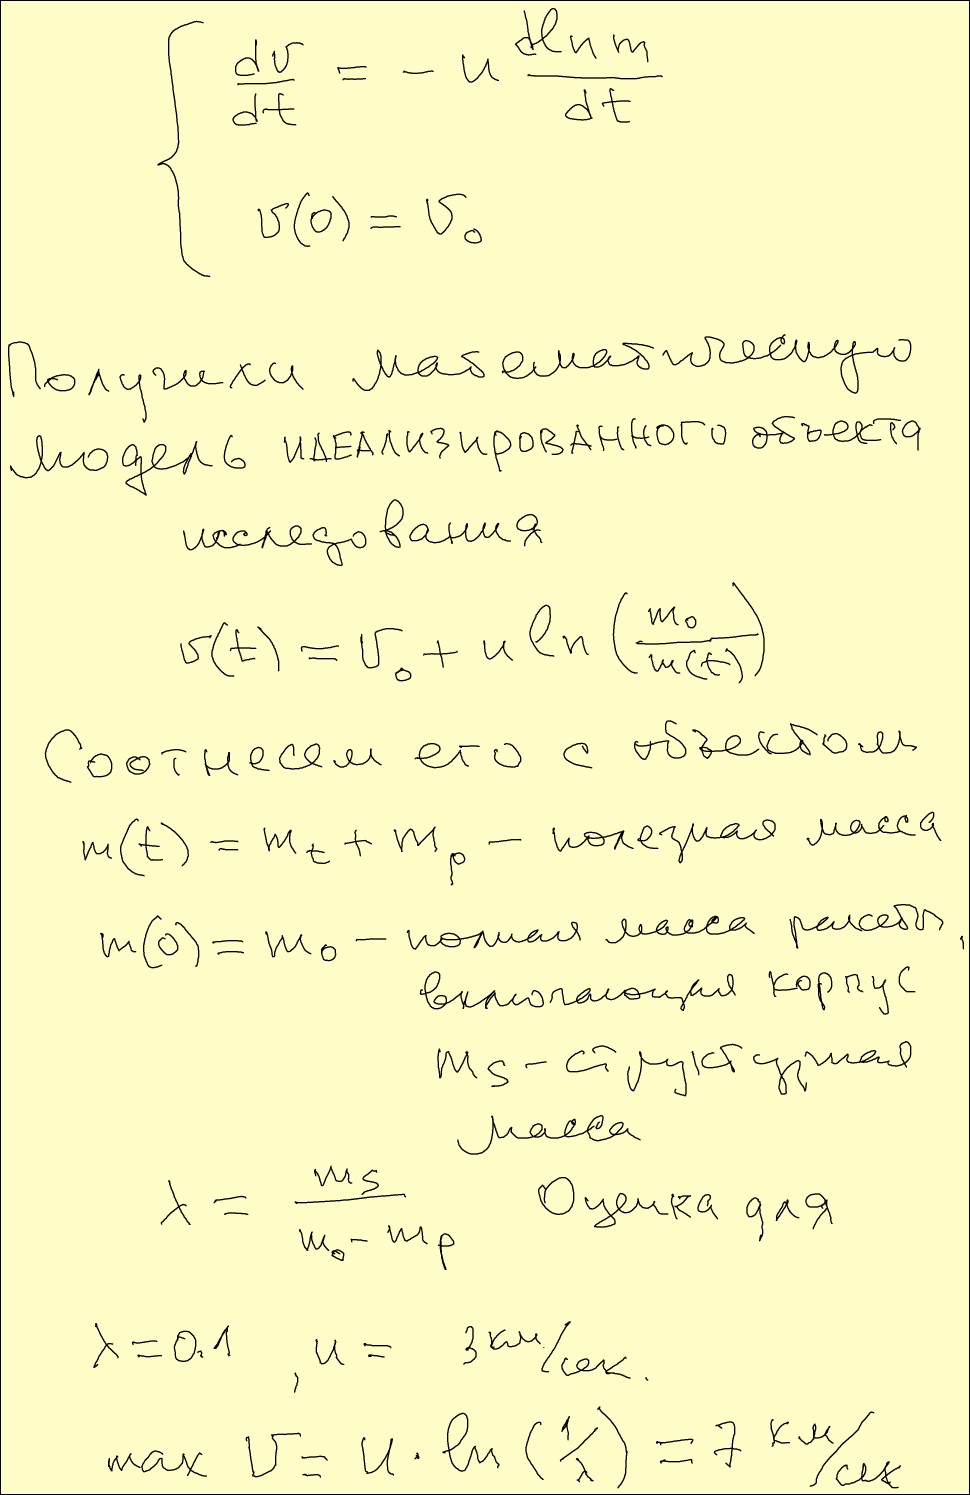 dv/dt = - u dln m/dt
v(0) = v₀
Получили математическую
модель ИДЕАЛИЗИРОВАННОГО объекта
исследования
v(t) = v₀ + u ln (m₀/m(t))
Соотнесем его с объектом
m(t) = m_t + m_p – полезная масса
m(0) = m₀ – полная масса ракеты,
включающая корпус
m_s – структурная
масса
λ = m_s/(m₀ - m_p) Оценка для
λ = 0.1 , u = 3 км/сек.
max v = u · ln (1/λ) = 7 км/сек